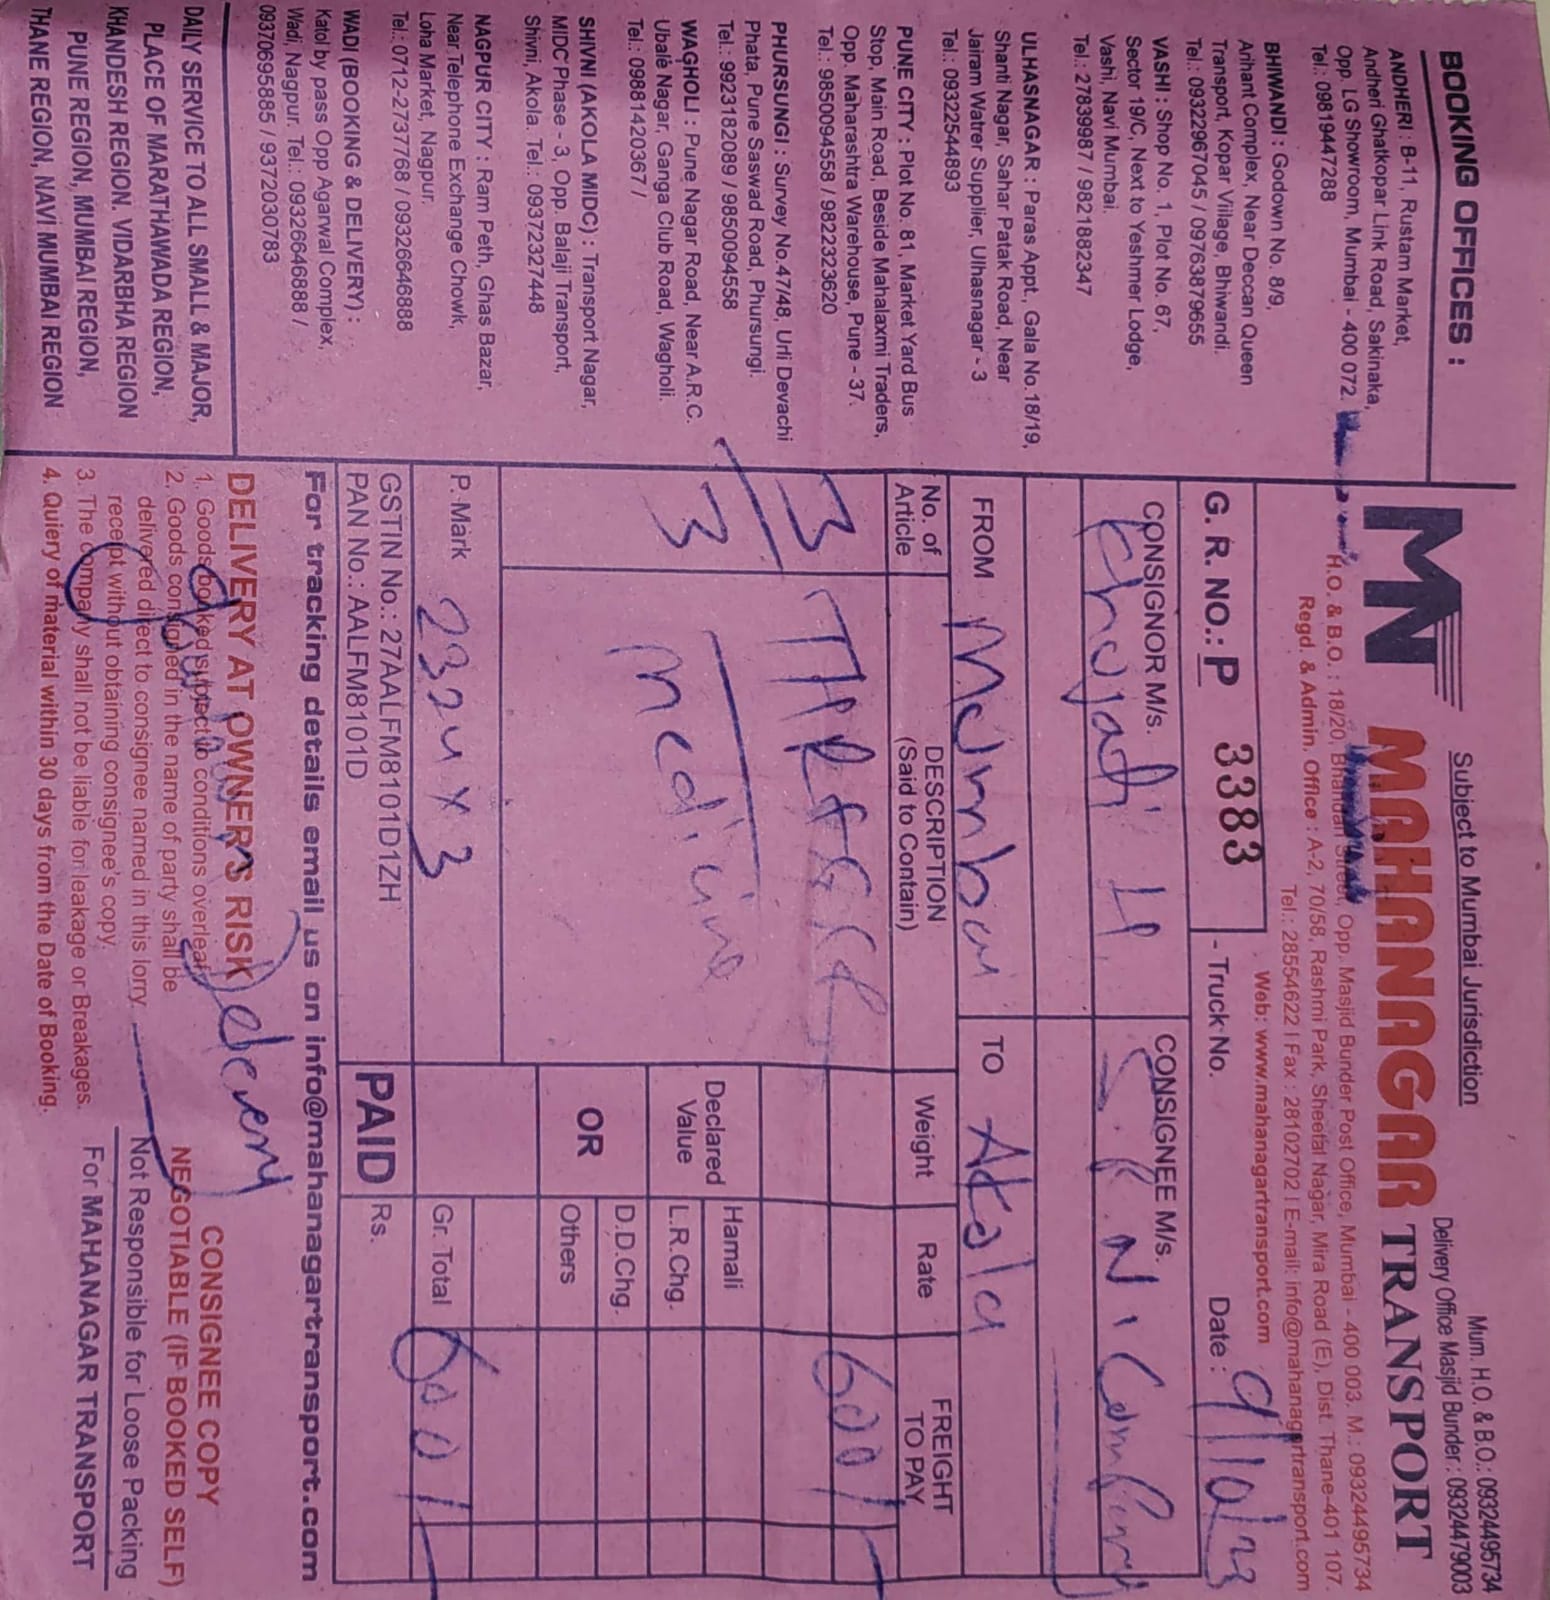 BOOKING OFFICES :
ANDHERI : B-11, Rustam Market,
Andheri Ghatkopar Link Road, Sakinaka,
Opp. LG Showroom, Mumbai - 400 072
Tel: 09819447288
BHIWANDI : Godown No. 8/9,
Arihant Complex, Near Deccan Queen
Transport, Kopar Village, Bhiwandi.
Tel.: 09322967045 / 09763879655
VASHI : Shop No. 1, Plot No. 67,
Sector 19/C, Next to Yeshmer Lodge,
Vashi, Navi Mumbai.
Tel.: 27839987 / 9821882347
ULHASNAGAR : Paras Appt., Gala No.18/19,
Shanti Nagar, Sahar Patak Road, Near
Jairam Watrer Supplier, Ulhasnagar - 3
Tel.: 09322544893
PUNE CITY : Plot No. 81, Market Yard Bus
Stop, Main Road, Beside Mahalaxmi Traders,
Opp. Maharashtra Warehouse, Pune - 37.
Tel.: 9850094558 / 9822323620
PHURSUNGI : Survey No.47/48, Urli Devachi
Phata, Pune Saswad Road, Phursungi.
Tel.: 9923182089 / 9850094558
WAGHOLI : Pune Nagar Road, Near A.R.C.
Ubale Nagar, Ganga Club Road, Wagholi.
Tel.: 09881420367 /
SHIVNI (AKOLA MIDC) : Transport Nagar,
MIDC Phase - 3, Opp. Balaji Transport,
Shivni, Akola. Tel.: 09372327448
NAGPUR CITY : Ram Peth, Ghas Bazar,
Near Telephone Exchange Chowk,
Loha Market, Nagpur.
Tel.: 0712-2737768 / 09326646888
WADI (BOOKING & DELIVERY) :
Katol by pass Opp Agarwal Complex,
Wadi, Nagpur. Tel.: 09326646888 /
09370695885 / 9372030783
DAILY SERVICE TO ALL SMALL & MAJOR,
PLACE OF MARATHAWADA REGION,
KHANDESH REGION. VIDARBHA REGION
PUNE REGION, MUMBAI REGION,
THANE REGION, NAVI MUMBAI REGION
Subject to Mumbai Jurisdiction
Mum. H.O. & B.O.: 09324495734
Delivery Office Masjid Bunder : 09324479003
MN MAHANAGAR TRANSPORT
H.O. & B.O. : 18/20, Bhandari Street, Opp. Masjid Bunder Post Office, Mumbai - 400 003. M.: 09324495734
Regd. & Admin. Office : A-2, 70/58, Rashmi Park, Sheetal Nagar, Mira Road (E), Dist. Thane-401 107.
Tel.: 28554622 I Fax : 28102702 I E-mail: info@mahanagartransport.com
Web: www.mahanagartransport.com
G. R. NO.: P 3383
Truck No.
Date : 9/10/23
CONSIGNOR M/s.
CONSIGNEE M/s.
S. R. N.
FROM Mumbai
TO Akola
No. of Article
DESCRIPTION (Said to Contain)
Weight
Rate
FREIGHT TO PAY
3
600/-
3 medicine
Declared Value
Hamali
L.R.Chg.
OR
D.D.Chg.
Others
P. Mark 2324 x 3
Gr. Total 600/-
GSTIN No.: 27AALFM8101D1ZH
PAN No.: AALFM8101D
PAID
Rs.
For tracking details email us on info@mahanagartransport.com
DELIVERY AT OWNER'S RISK
1. Goods booked subject to conditions overleaf
2. Goods consigned in the name of party shall be
delivered direct to consignee named in this lorry
receipt without obtaining consignee's copy.
3. The company shall not be liable for leakage or Breakages.
4. Quiery of material within 30 days from the Date of Booking.
CONSIGNEE COPY
NEGOTIABLE (IF BOOKED SELF)
Not Responsible for Loose Packing
For MAHANAGAR TRANSPORT